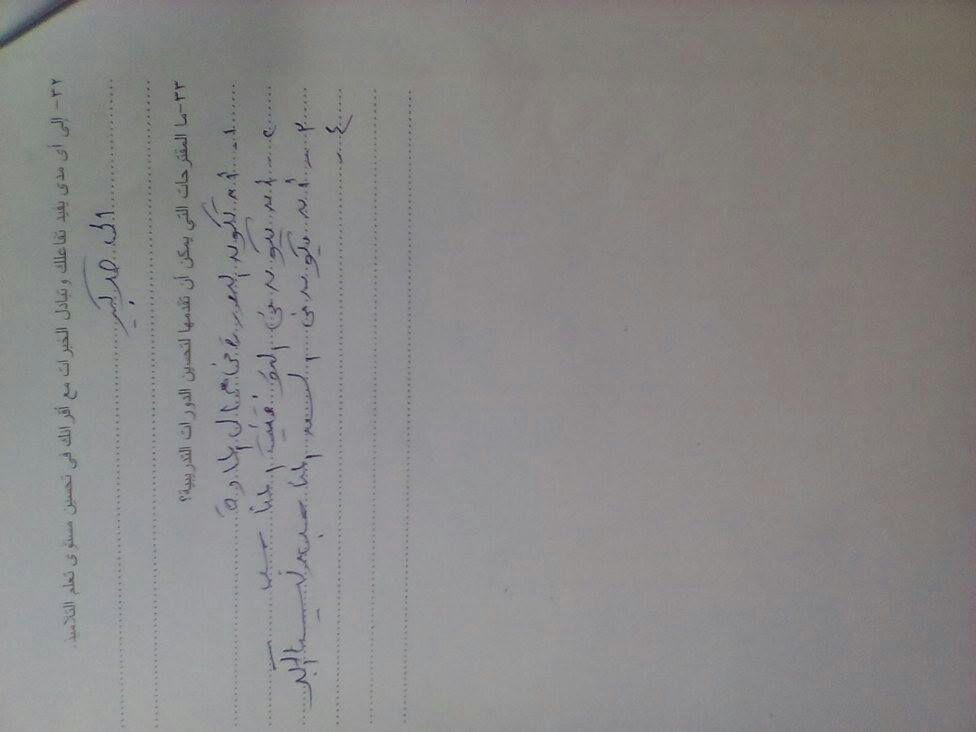 ٣٢- إلى أى مدى يفيد تفاعلك وتبادل الخبرات مع أقرانك فى تحسين مستوى تعلم التلاميذ.
الى حد كبير
٣٣- ما المقترحات التي يمكن أن تقدمها لتحسين الدورات التدريبية؟
١- أن تكون الدورة فى مجال المادة
٢- أن تكون فى التوقيت المناسب
٣- أن تكون فى السن المناسب
٤-